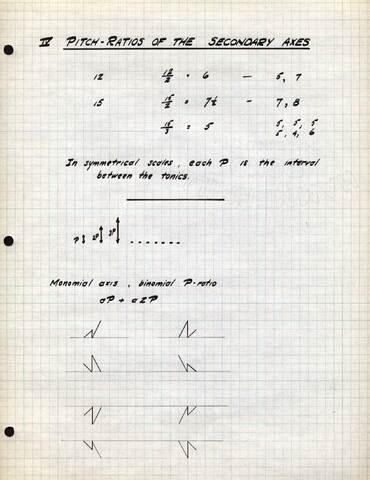 IV PITCH-RATIOS OF THE SECONDARY AXES
12 12/2 = 6 — 5, 7
15 15/2 = 7½ — 7, 8
15/3 = 5 5, 5, 5
5, 4, 6
In symmetrical scales, each P is the interval
between the tonics.
P 2P 3P .......
Monomial axis, binomial P-ratio
aP + a2P